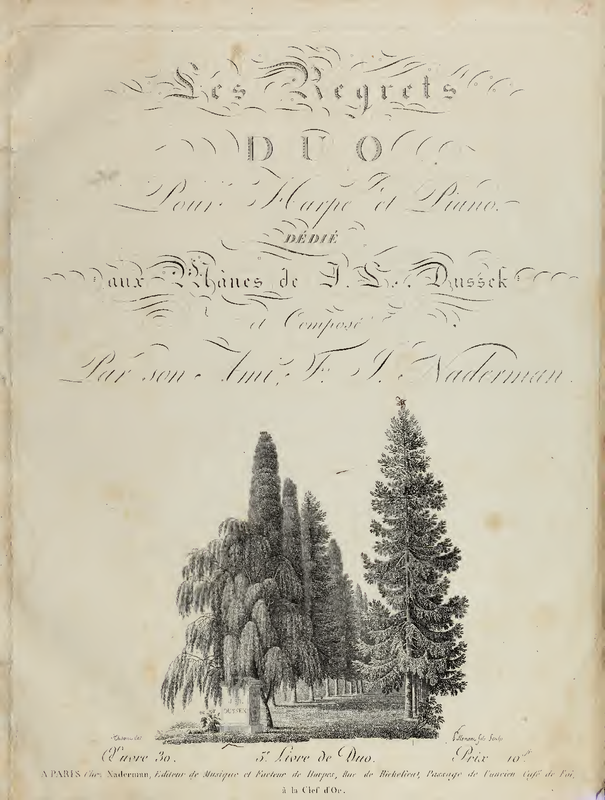 Les Regrets
DUO
Pour Harpe et Piano.
DÉDIÉ
aux Mânes de J. L. Dussek
et Composé
Par son Ami, F. J. Naderman.
DUSSEK
Œuvre 30. 3e. Livre de Duo. Prix 10f
A PARIS Chez Naderman, Editeur de Musique et Facteur de Harpes, Rue de Richelieu, Passage de l'ancien Café de Foi,
à la Clef d'Or.